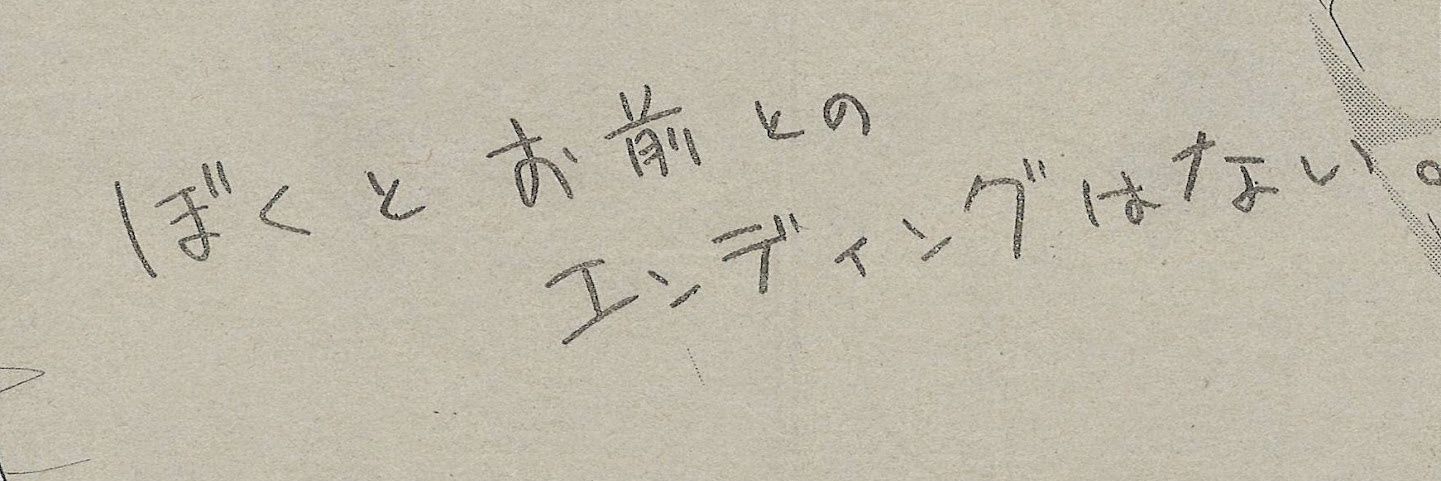 ぼくとお前との
エンディングはない。